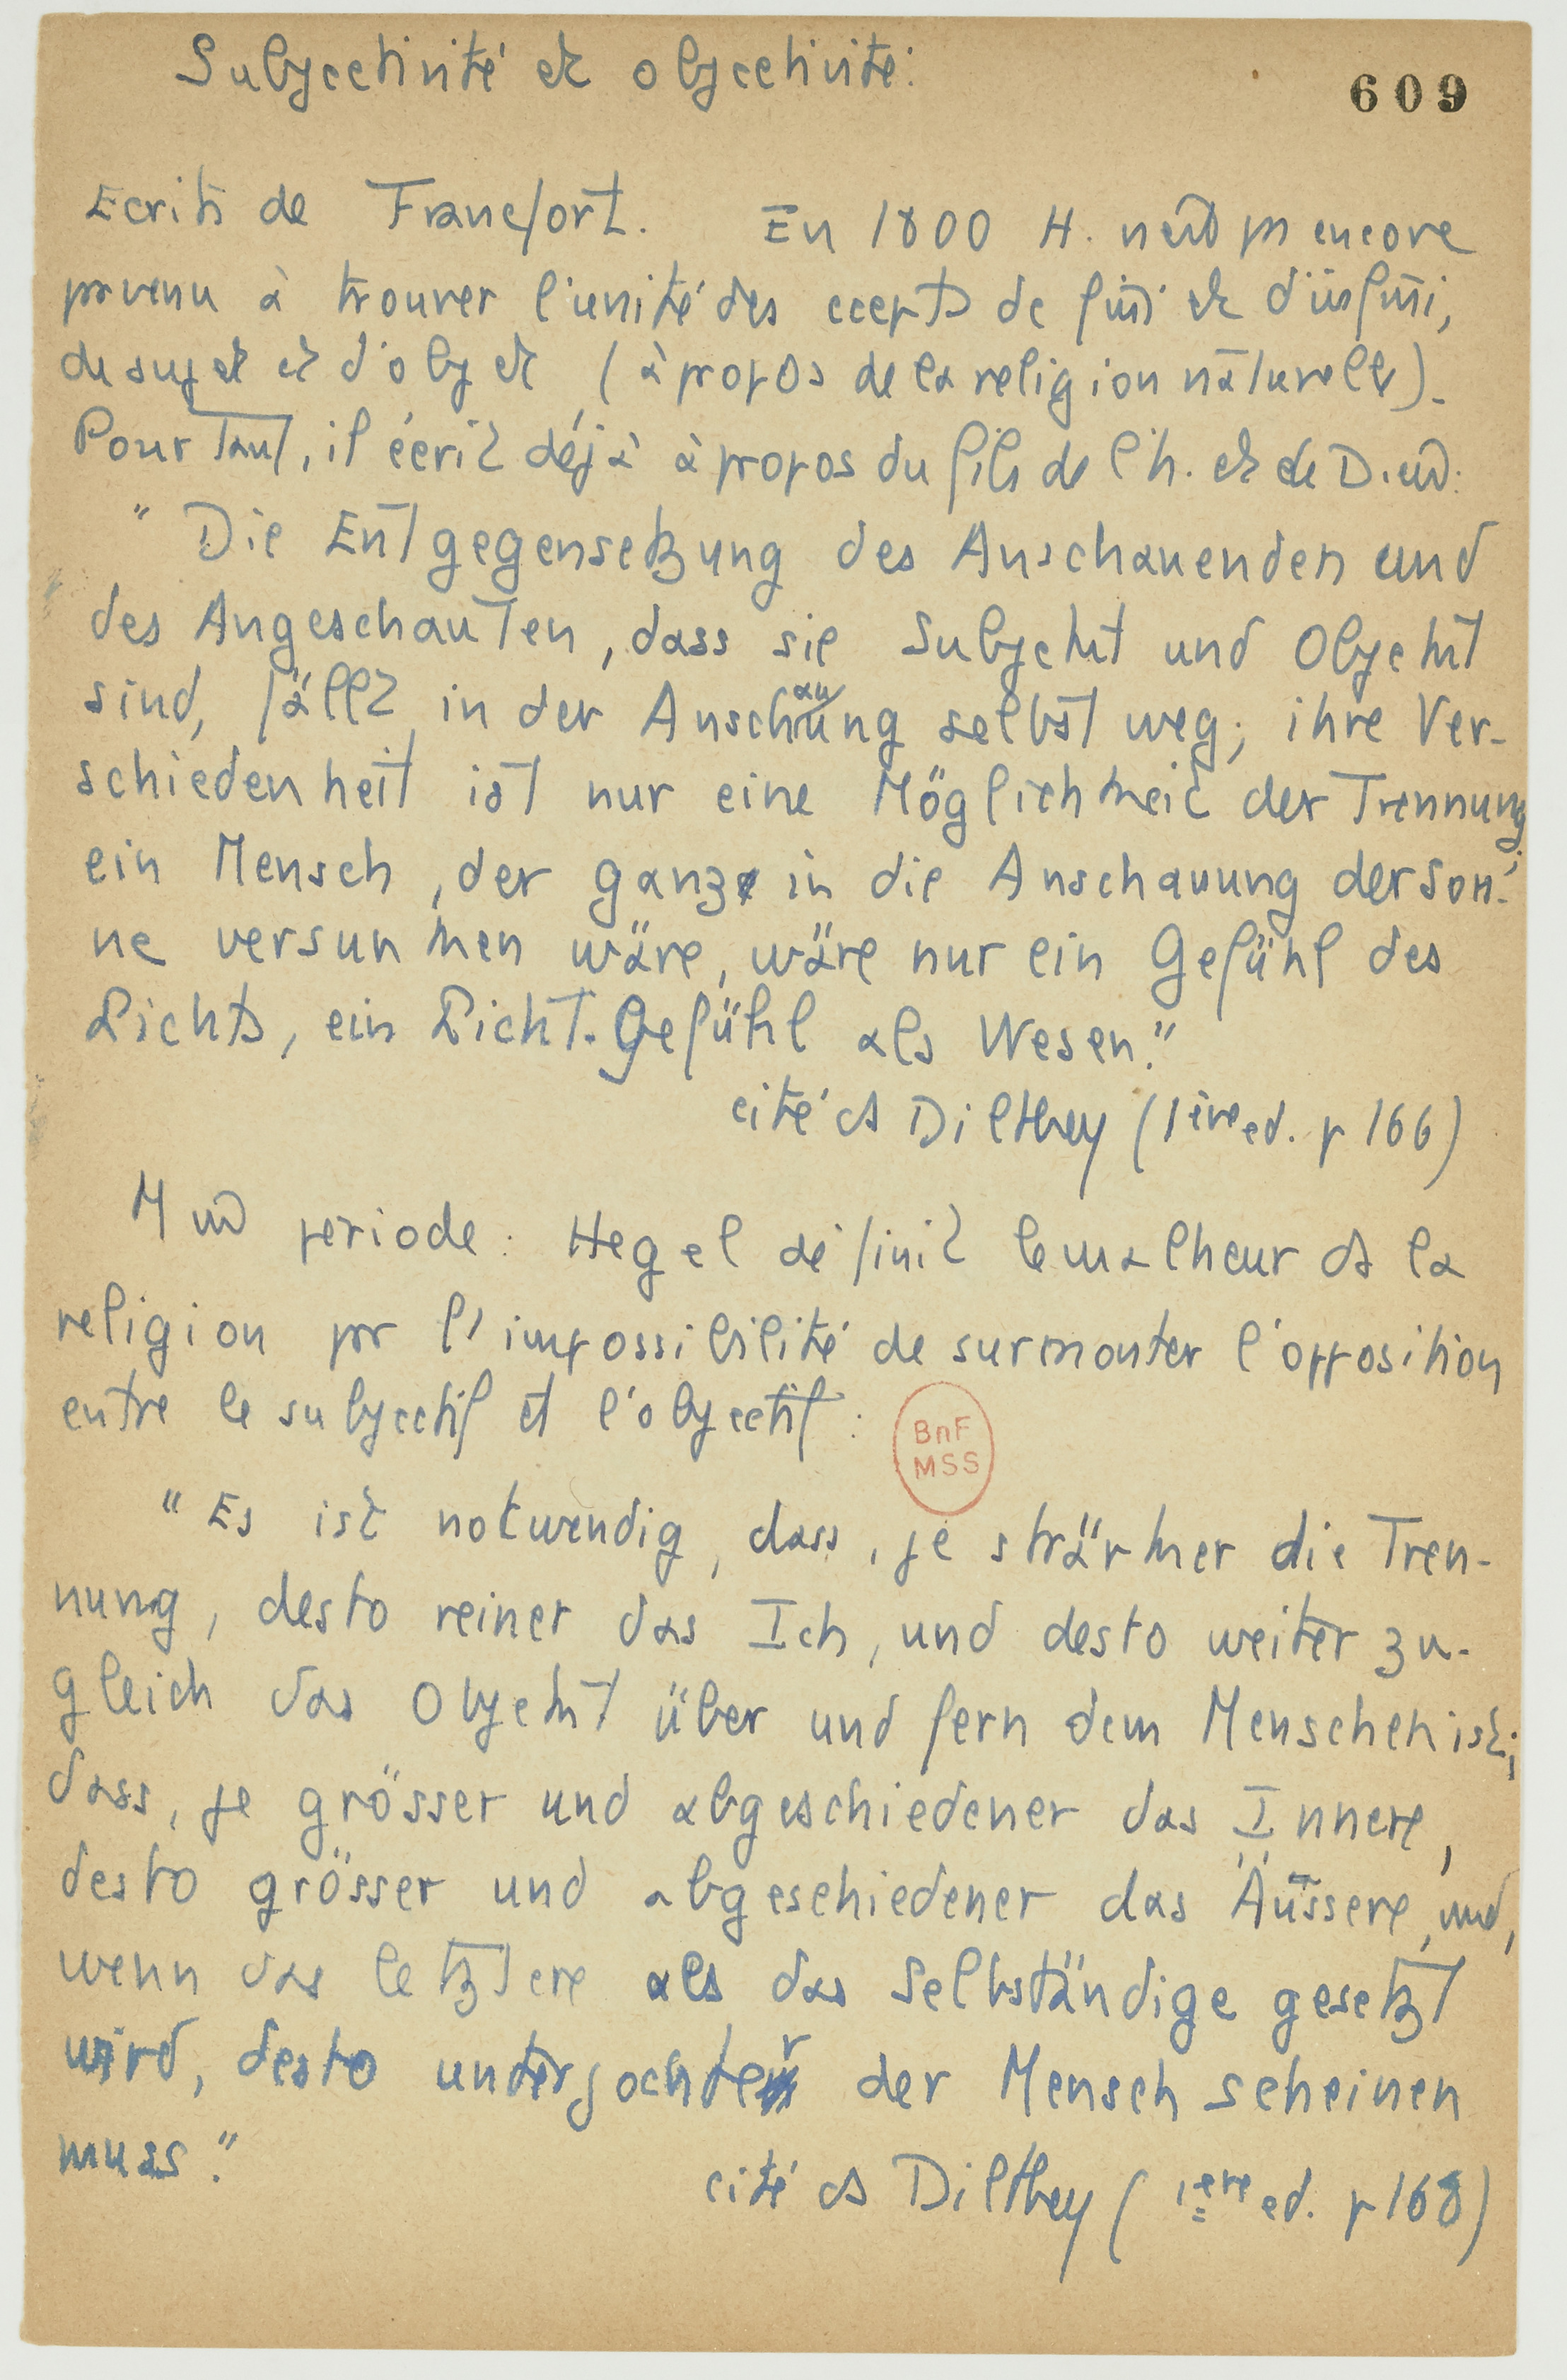 Subjectivité et objectivité:
609
Ecrits de Francfort. En 1800 H. n'est pas encore
parvenu à trouver l'unité des ccepts de fini et d'infini,
de sujet et d'objet (à propos de la religion naturelle).
Pourtant, il écrit déjà à propos du fils de l'h. et de Dieu:
" Die Entgegensetzung des Anschauenden und
des Angeschauten, dass sie Subjekt und Objekt
sind, fällt in der Anschauung selbst weg; ihre Ver-
schiedenheit ist nur eine Möglichkeit der Trennung;
ein Mensch, der ganz in die Anschauung der Son-
ne versunken wäre, wäre nur ein Gefühl des
Lichts, ein Licht-Gefühl als Wesen."
cité ds Dilthey (1ère ed. p 166)
M période: Hegel définit le malheur ds la
religion par l'impossibilité de surmonter l'opposition
entre le subjectif et l'objectif:
BnF
MSS
"Es ist notwendig, dass, je stärker die Tren-
nung, desto reiner das Ich, und desto weiter zu-
gleich das Objekt über und fern dem Menschen ist;
dass, je grösser und abgeschiedener das Innere,
desto grösser und abgeschiedener das Äussere, und,
wenn das letztere als das Selbständige gesetzt
wird, desto unterjochter der Mensch scheinen
muss."
cité ds Dilthey (1ere ed. p 168)